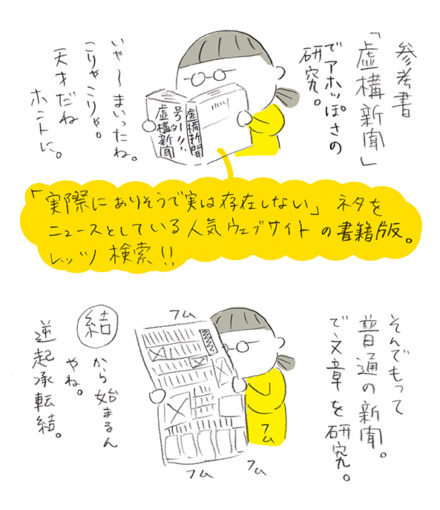 参考書
「虚構新聞」
でアホっぽさの
研究。
いや〜まいったね。
こりゃこりゃ。
天才だね
ホントに。
虚構新聞
号外!!!
虚構新聞
「実際にありそうで実は存在しない」ネタを
ニュースとしている人気ウェブサイトの書籍版。
レッツ検索!!
そんでもって
普通の新聞。
で文章を研究。
フム
フム
フム
フム
結
から始まるん
やね。
逆起承転結。